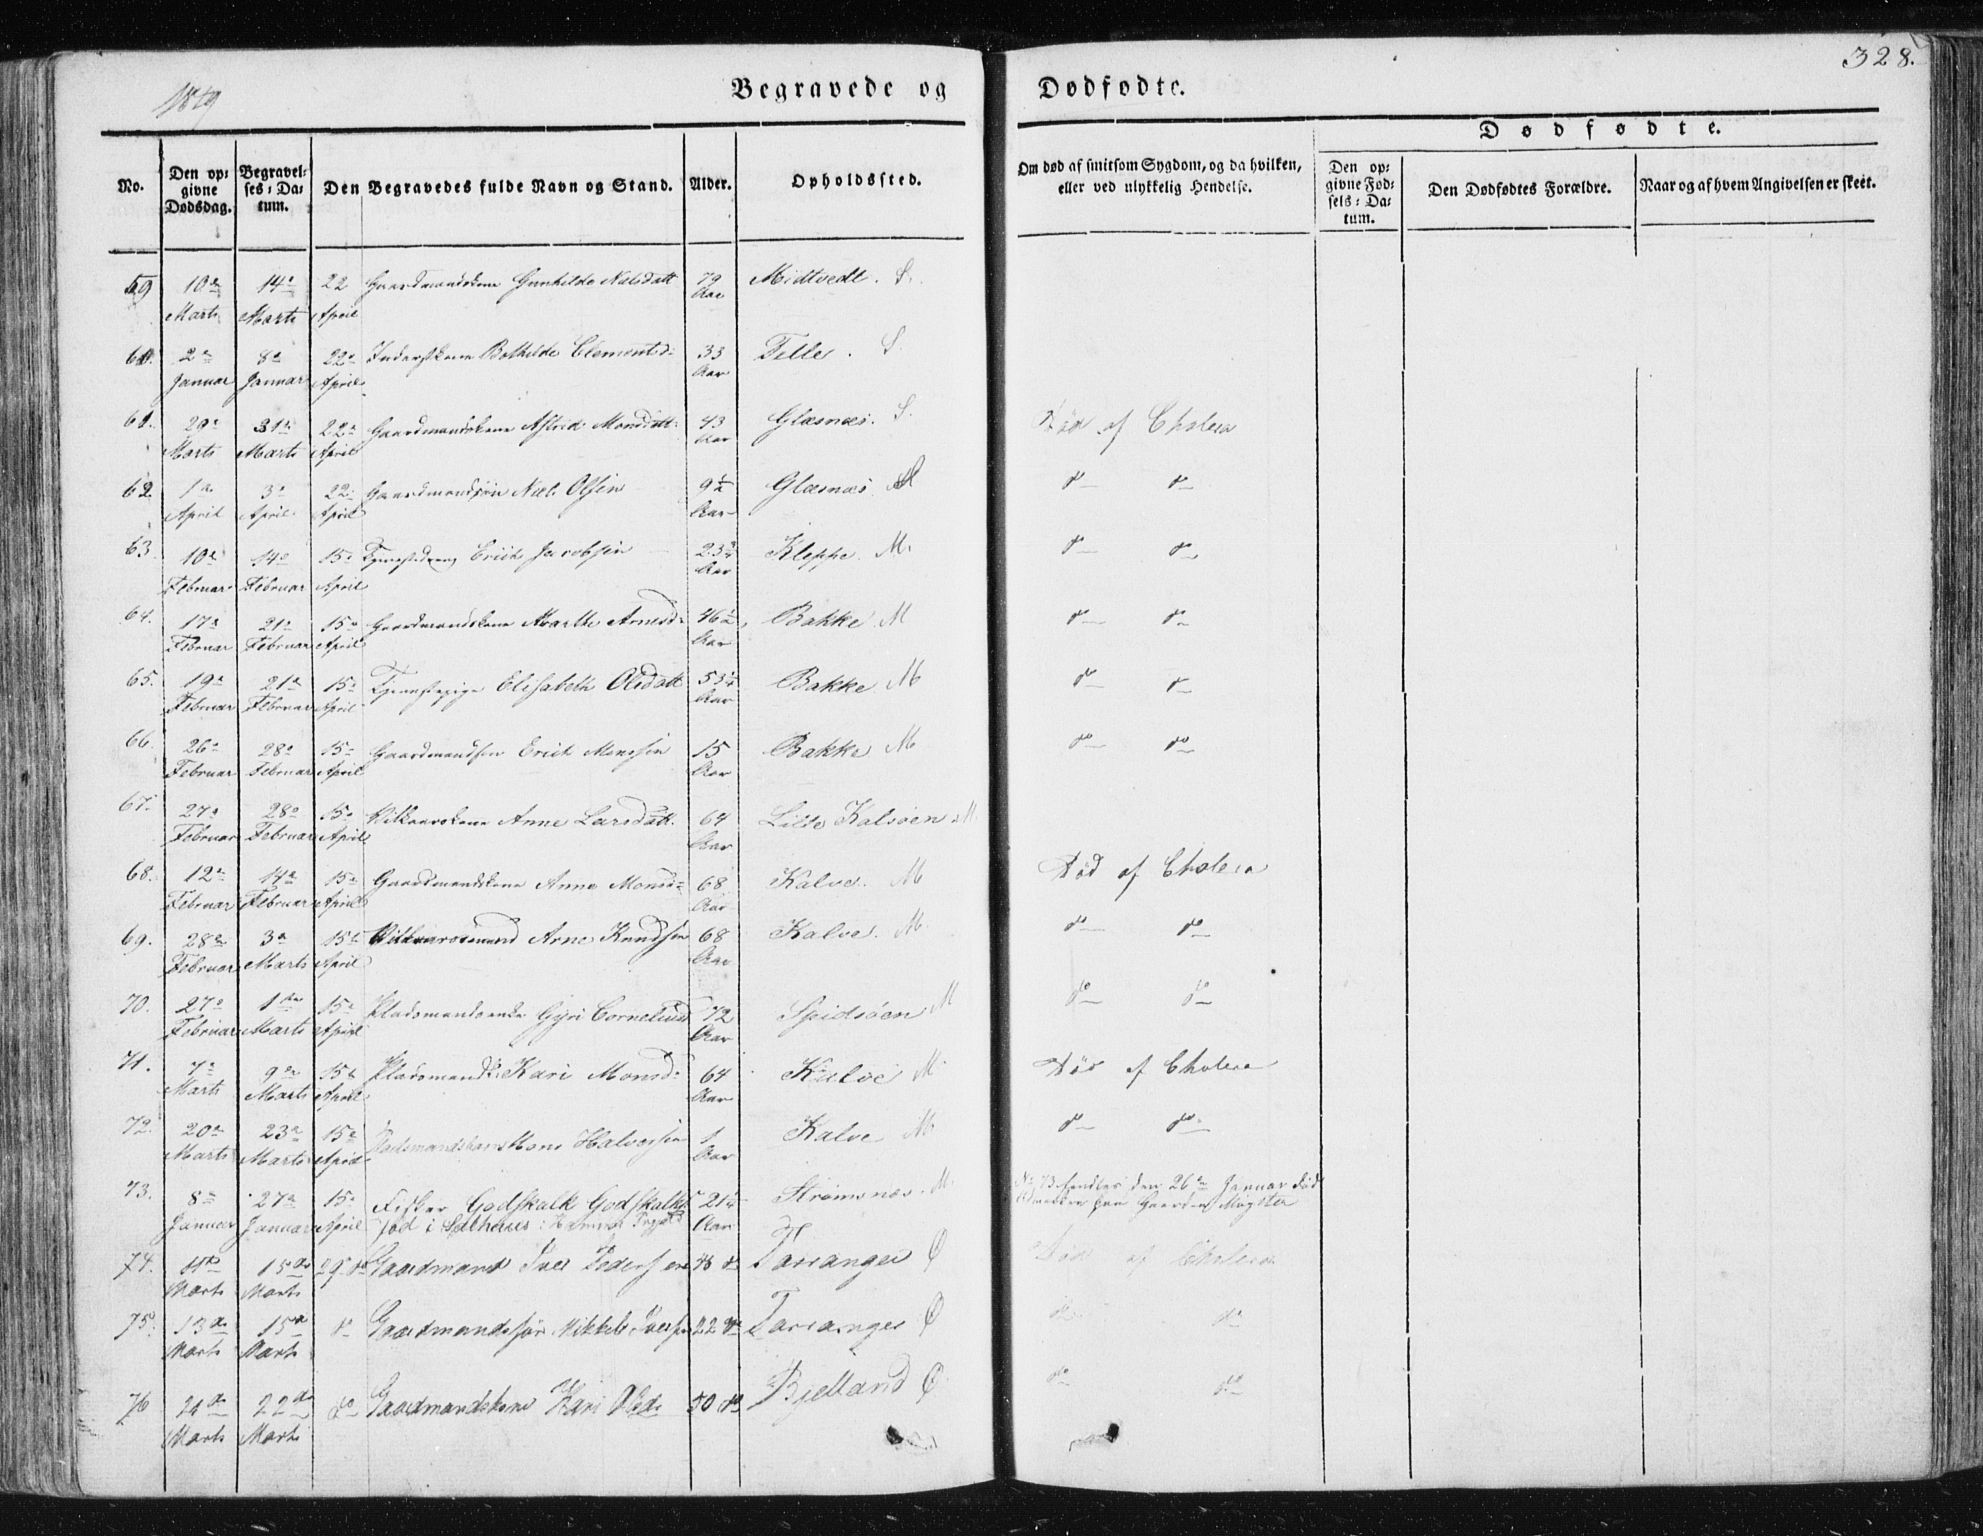 328.
1849
Begravede og Dødfødte.
Dødfødte.
No.
Den op=
givne
Dødsdag.
Begravel=
ses=Da=
tum.
Den Begravedes fulde Navn og Stand.
Alder.
Opholdssted.
Om død af smitsom Sygdom, og da hvilken,
eller ved ulykkelig Hendelse.
Den op=
givne Fød=
sels=Da=
tum.
Den Dødfødtes Forældre.
Naar og af hvem Angivelsen er skeet.
59 10de 14de 22 Gaardmandskone Gunhilde Nielsdatt 79 Midtvedt. S.
Marts Marts April Aar
60. 2de 8de 22de Inderstkone Bothilde Clementsd: 33 Telle. S.
Januar Januar April Aar
61. 29de 31te 22de Gaardmandskone Astrid Monsdatt: 43 Glæsnæs. S. Død af Cholera
Marts Marts April Aar
62 1te 3de 22de Gaardmandssøn Niels Olsen 9½ Glæsnæs do do
April April April Aar
63. 10de 14de 15de Tjenestedreng Erich Jacobsen 23¾ Kleppe M. do do
Februar Februar April Aar
64. 17de 21de 15de Gaardmandskone Marthe Arnesd: 46½ Bakke M do do
Februar Februar April Aar
65. 19de 21de 15de Tjenestepige Elisabeth Olsdatt 53¼ Bakke M do do
Februar Februar April Aar
66. 26de 28de 15de Gaardmandsøn Erich Monssen 15 Bakke M do do
Februar Februar April Aar
67. 27de 28de 15de Vilkaarskone Anne Larsdatt. 64 Lille Kalsøen M.
Februar Februar April Aar
68. 12te 14de 15de Gaardmandskone Anne Monsd: 68 Kalve. M Død af Cholera
Februar Februar April Aar
69. 28de 3de 15de Vilkaarsmand Arne Knudsen 68 Kalve. M. do do
Februar Marts April Aar
70. 27de 1ste 15de Pladsmandsenke Gyri Cornelius 72 Spidsøen M do do
Februar Marts April Aar
71. 7de 9de 15de Pladsmandsk: Kari Monsd: 64 Kalve M. Død af Cholera
Marts Marts April Aar
72. 20de 23de 15de Pladsmandsbarn Mons Halvorsen 1 Kalve M do do
Marts Marts April Aar
73. 8de 27de 15de Fisker Godskalk Godskalks 21¼ Strømsnæs. M. No 73 fandtes den 26de Januar død
Januar Januar April født i Salthuus: Aar Gaarden Møgster
74. 11te 15de 29 do Gaardmand Iver Pedersen 48 do Tarranger Ø Død af Cholera
Marts Marts
75. 13de 15de do Gaardmandssøn Mikkel Iversen 22 do Tarranger Ø do do
Marts Marts
76 20de 22de do Gaardmandskone Kari Olsd: 50 do Bjelland Ø. do do
Marts Marts